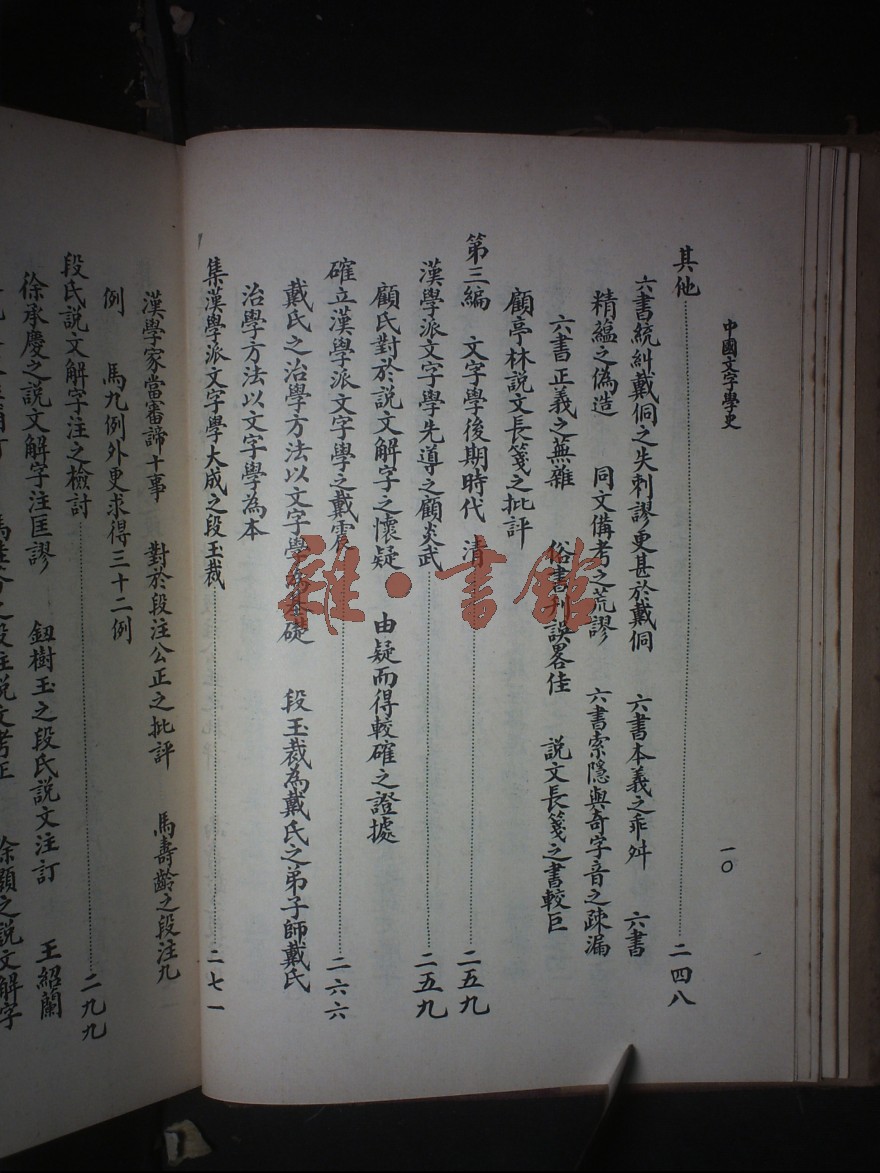 中國文字學史
一〇
其他……二四八
六書統糾戴侗之失刺謬更甚於戴侗 六書本義之乖舛 六書
精蘊之偽造 同文備考之荒謬 六書索隱與奇字音之疎漏
六書正義之蕪雜 俗書刊誤畧佳 説文長箋之書較巨
顧亭林説文長箋之批評
第三編 文字學後期時代 清……二五九
漢學派文字學先導之顧炎武……二五九
顧氏對於説文解字之懷疑 由疑而得較確之證據
確立漢學派文字學之戴震……二六六
戴氏之治學方法以文字學為基礎 段玉裁為戴氏之弟子師戴氏
治學方法以文字學為本
集漢學派文字學大成之段玉裁……二七一
漢學家當審諦十事 對於段注公正之批評 馬壽齡之段注九
例 馬九例外更求得三十二例
段氏説文解字注之檢討……二九九
徐承慶之説文解字注匡謬 鈕樹玉之段氏説文注訂 王紹蘭
之段注説文考正 徐灝之説文解字
雜·書館